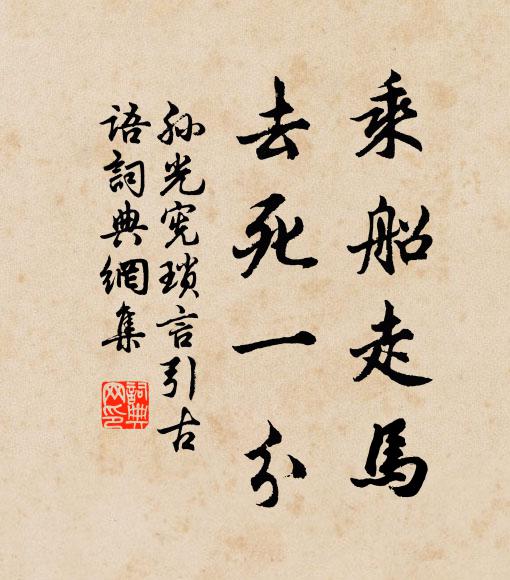 乘船走馬
去死一分
孫光宪瑣言引古
語詞典網集
詞典
网印